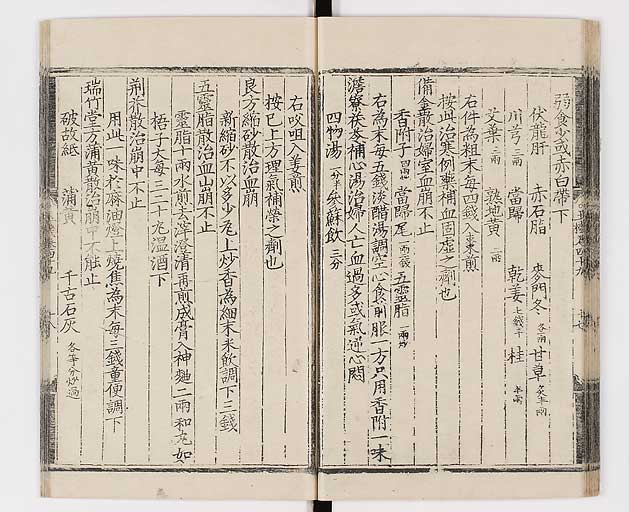 弱食少或赤白帶下
伏龍肝 赤石脂 麥門冬 各兩 甘草 炙半兩
川芎 三兩 當歸 乾姜 七錢半 桂 半兩
艾葉 三兩 熟地黃 二兩
右件為粗末每四錢入棗煎
按此治寒例藥補血固虛之劑也
備金散治婦室血崩不止
香附子 四兩炒 當歸尾 一兩二錢 五靈脂 一兩炒
右為末每五錢淡醋湯調空心食前服一方只用香附一味
澹寮茯苓補心湯治婦人亡血過多或氣逆心悶
四物湯 一分半 參蘇飲 三分
右㕮咀入姜煎
按已上方理氣補榮之劑也
良方縮砂散治血崩
新縮砂不以多少瓦上炒香為細末米飲調下三錢
五靈脂散治血山崩不止
靈脂十兩水煎去滓澄清再煎成膏入神麴二兩和丸如
梧子大每三二十丸溫酒下
荊芥散治崩中不止
用此一味於麻油燈上燒焦為末每三錢童便調下
瑞竹堂方蒲黃散治崩中不能止
破故紙 蒲黃 千古石灰 各等分炒過